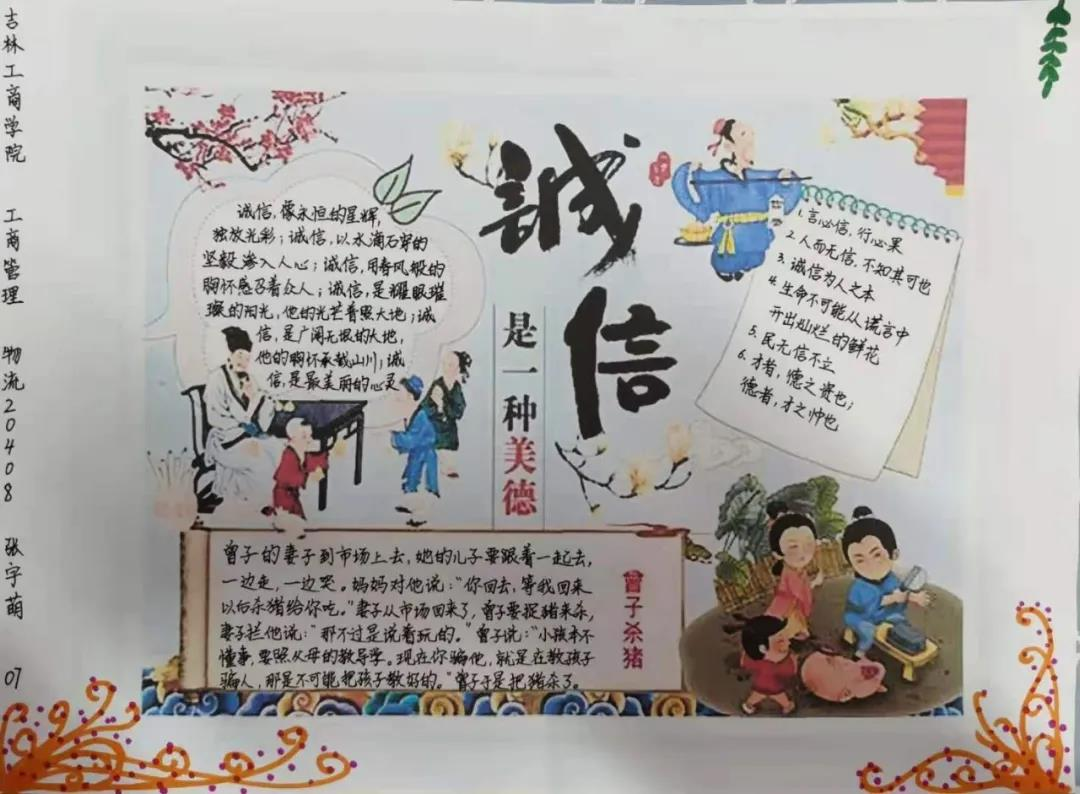 吉林工商学院 工商管理 物流20408 张宇萌 07
誠信
是一种美德
诚信,像永恒的星辉,
独放光彩;诚信,以水滴石穿的
坚毅渗入人心;诚信,用春风般的
胸怀感召着众人;诚信,是耀眼璀
璨的阳光,他的光芒普照大地;诚
信,是广阔无垠的大地,
他的胸怀承载山川;诚
信,是最美丽的心灵
1.言必信,行必果
2.人而无信,不知其可也
3.诚信为人之本
4.生命不可能从谎言中
开出灿烂的鲜花
5.民无信不立
6.才者,德之资也;
德者,才之帅也
曾子杀猪
曾子的妻子到市场上去,她的儿子要跟着一起去,
一边走,一边哭。妈妈对他说:“你回去,等我回来
以后杀猪给你吃。”妻子从市场回来了,曾子要捉猪来杀,
妻子拦他说:“那不过是说着玩的。”曾子说:“小孩本不
懂事,要照父母的教导学。现在你骗他,就是在教孩子
骗人,那是不可能把孩子教好的。”曾子于是把猪杀了。